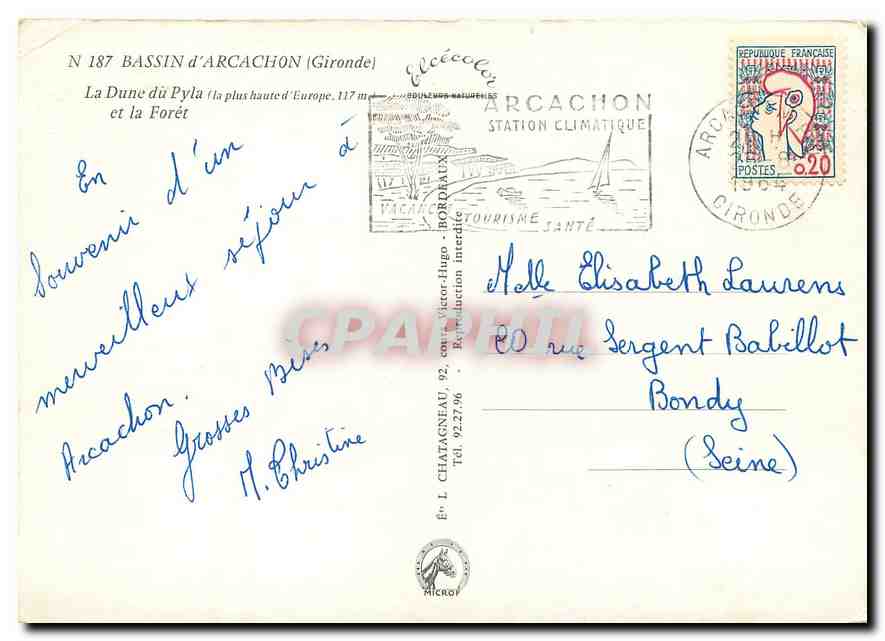 N 187 BASSIN d'ARCACHON (Gironde)
La Dune du Pyla (la plus haute d'Europe, 117 m.)
et la Forêt
Elcécolor
COULEURS NATURELLES
ARCACHON
STATION CLIMATIQUE
VACANCES
TOURISME
SANTÉ
ARCACHON
1964
GIRONDE
RÉPUBLIQUE FRANÇAISE
POSTES 0,20
En
Souvenir d'un
merveilleux séjour à
Arcachon.
Grosses Bises
M. Christine
Melle Elisabeth Laurens
20 rue Sergent Babillot
Bondy
(Seine)
Éts L. CHATAGNEAU, 92, cours Victor-Hugo - BORDEAUX
Tél. 92.27.96 - Reproduction interdite
CPAPHIL
MICROF